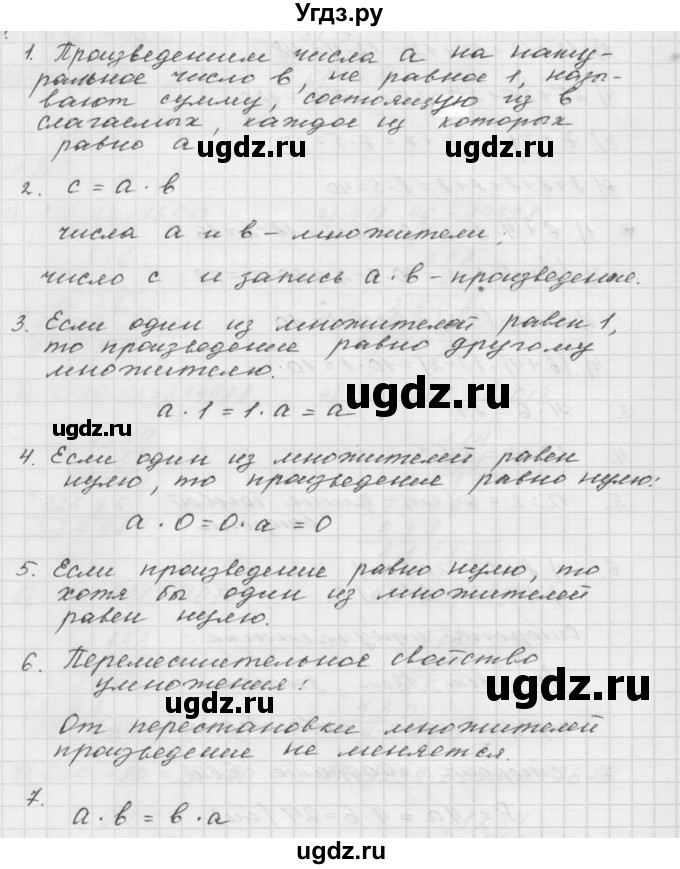 Угдз.ру
1. Произведением числа а на нату-
ральное число в, не равное 1, назы-
вают сумму, состоящую из в
слагаемых, каждое из которых
равно а
ugdz.ru ugdz.ru
2. с = а · в
числа а и в – множители;
число с и запись а · в – произведение.
3. Если один из множителей равен 1,
то произведение равно другому
множителю.
ugdz.ru
а · 1 = 1 · а = а
ugdz.ru
4. Если один из множителей равен
нулю, то произведение равно нулю:
а · 0 = 0 · а = 0
5. Если произведение равно нулю, то
хотя бы один из множителей
равен нулю.
6. Переместительное свойство
умножения:
ugdz.ru
От перестановки множителей
произведение не меняется.
7.
а · в = в · а
ugdz.ru